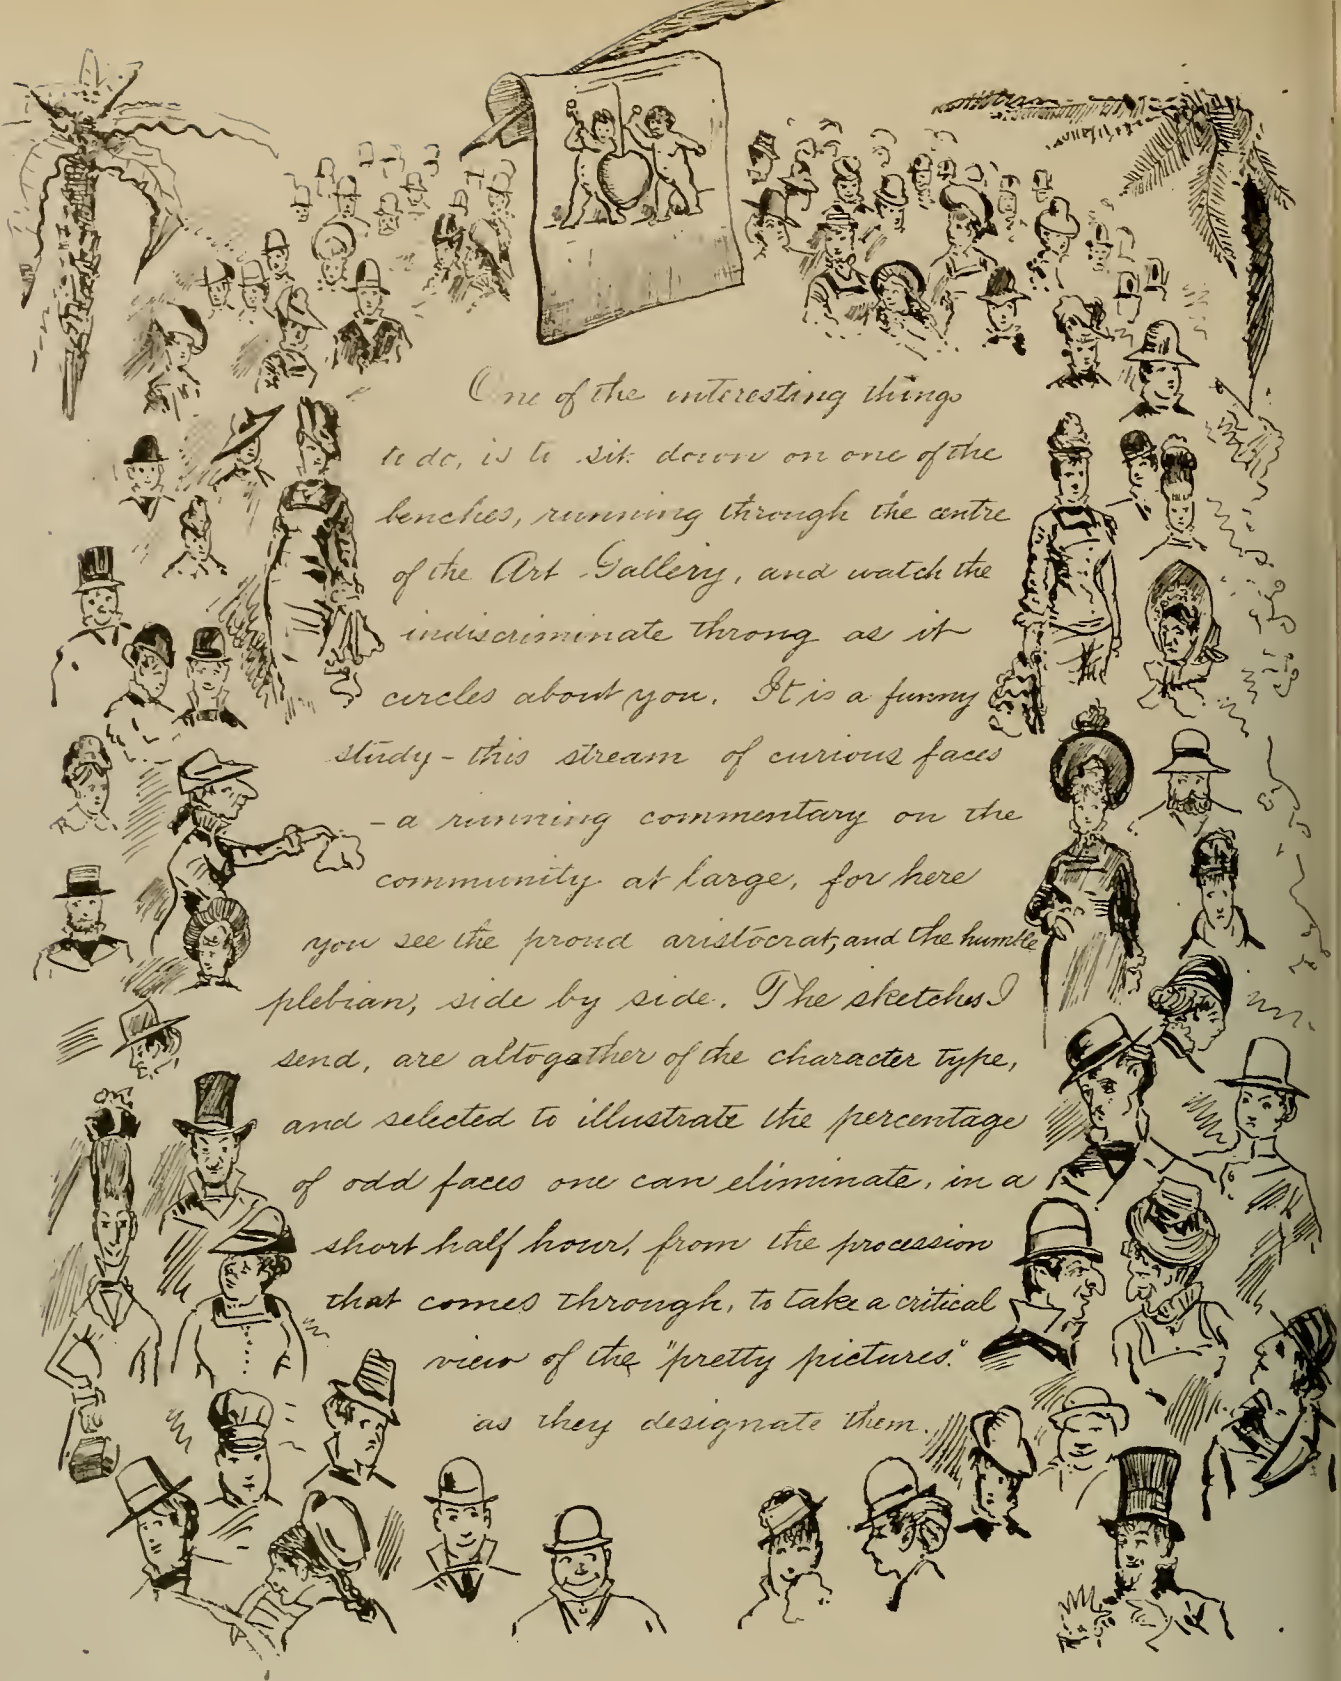 One of the interesting things
to do, is to sit down on one of the
benches, running through the centre
of the Art Gallery, and watch the
indiscriminate throng as it
circles about you. It is a funny
study - this stream of curious faces
- a running commentary on the
community at large, for here
you see the proud aristocrat, and the humble
plebian, side by side. The sketches I
send, are altogather of the character type,
and selected to illustrate the percentage
of odd faces one can eliminate, in a
short half hour, from the procession
that comes through, to take a critical
view of the "pretty pictures."
as they designate them.